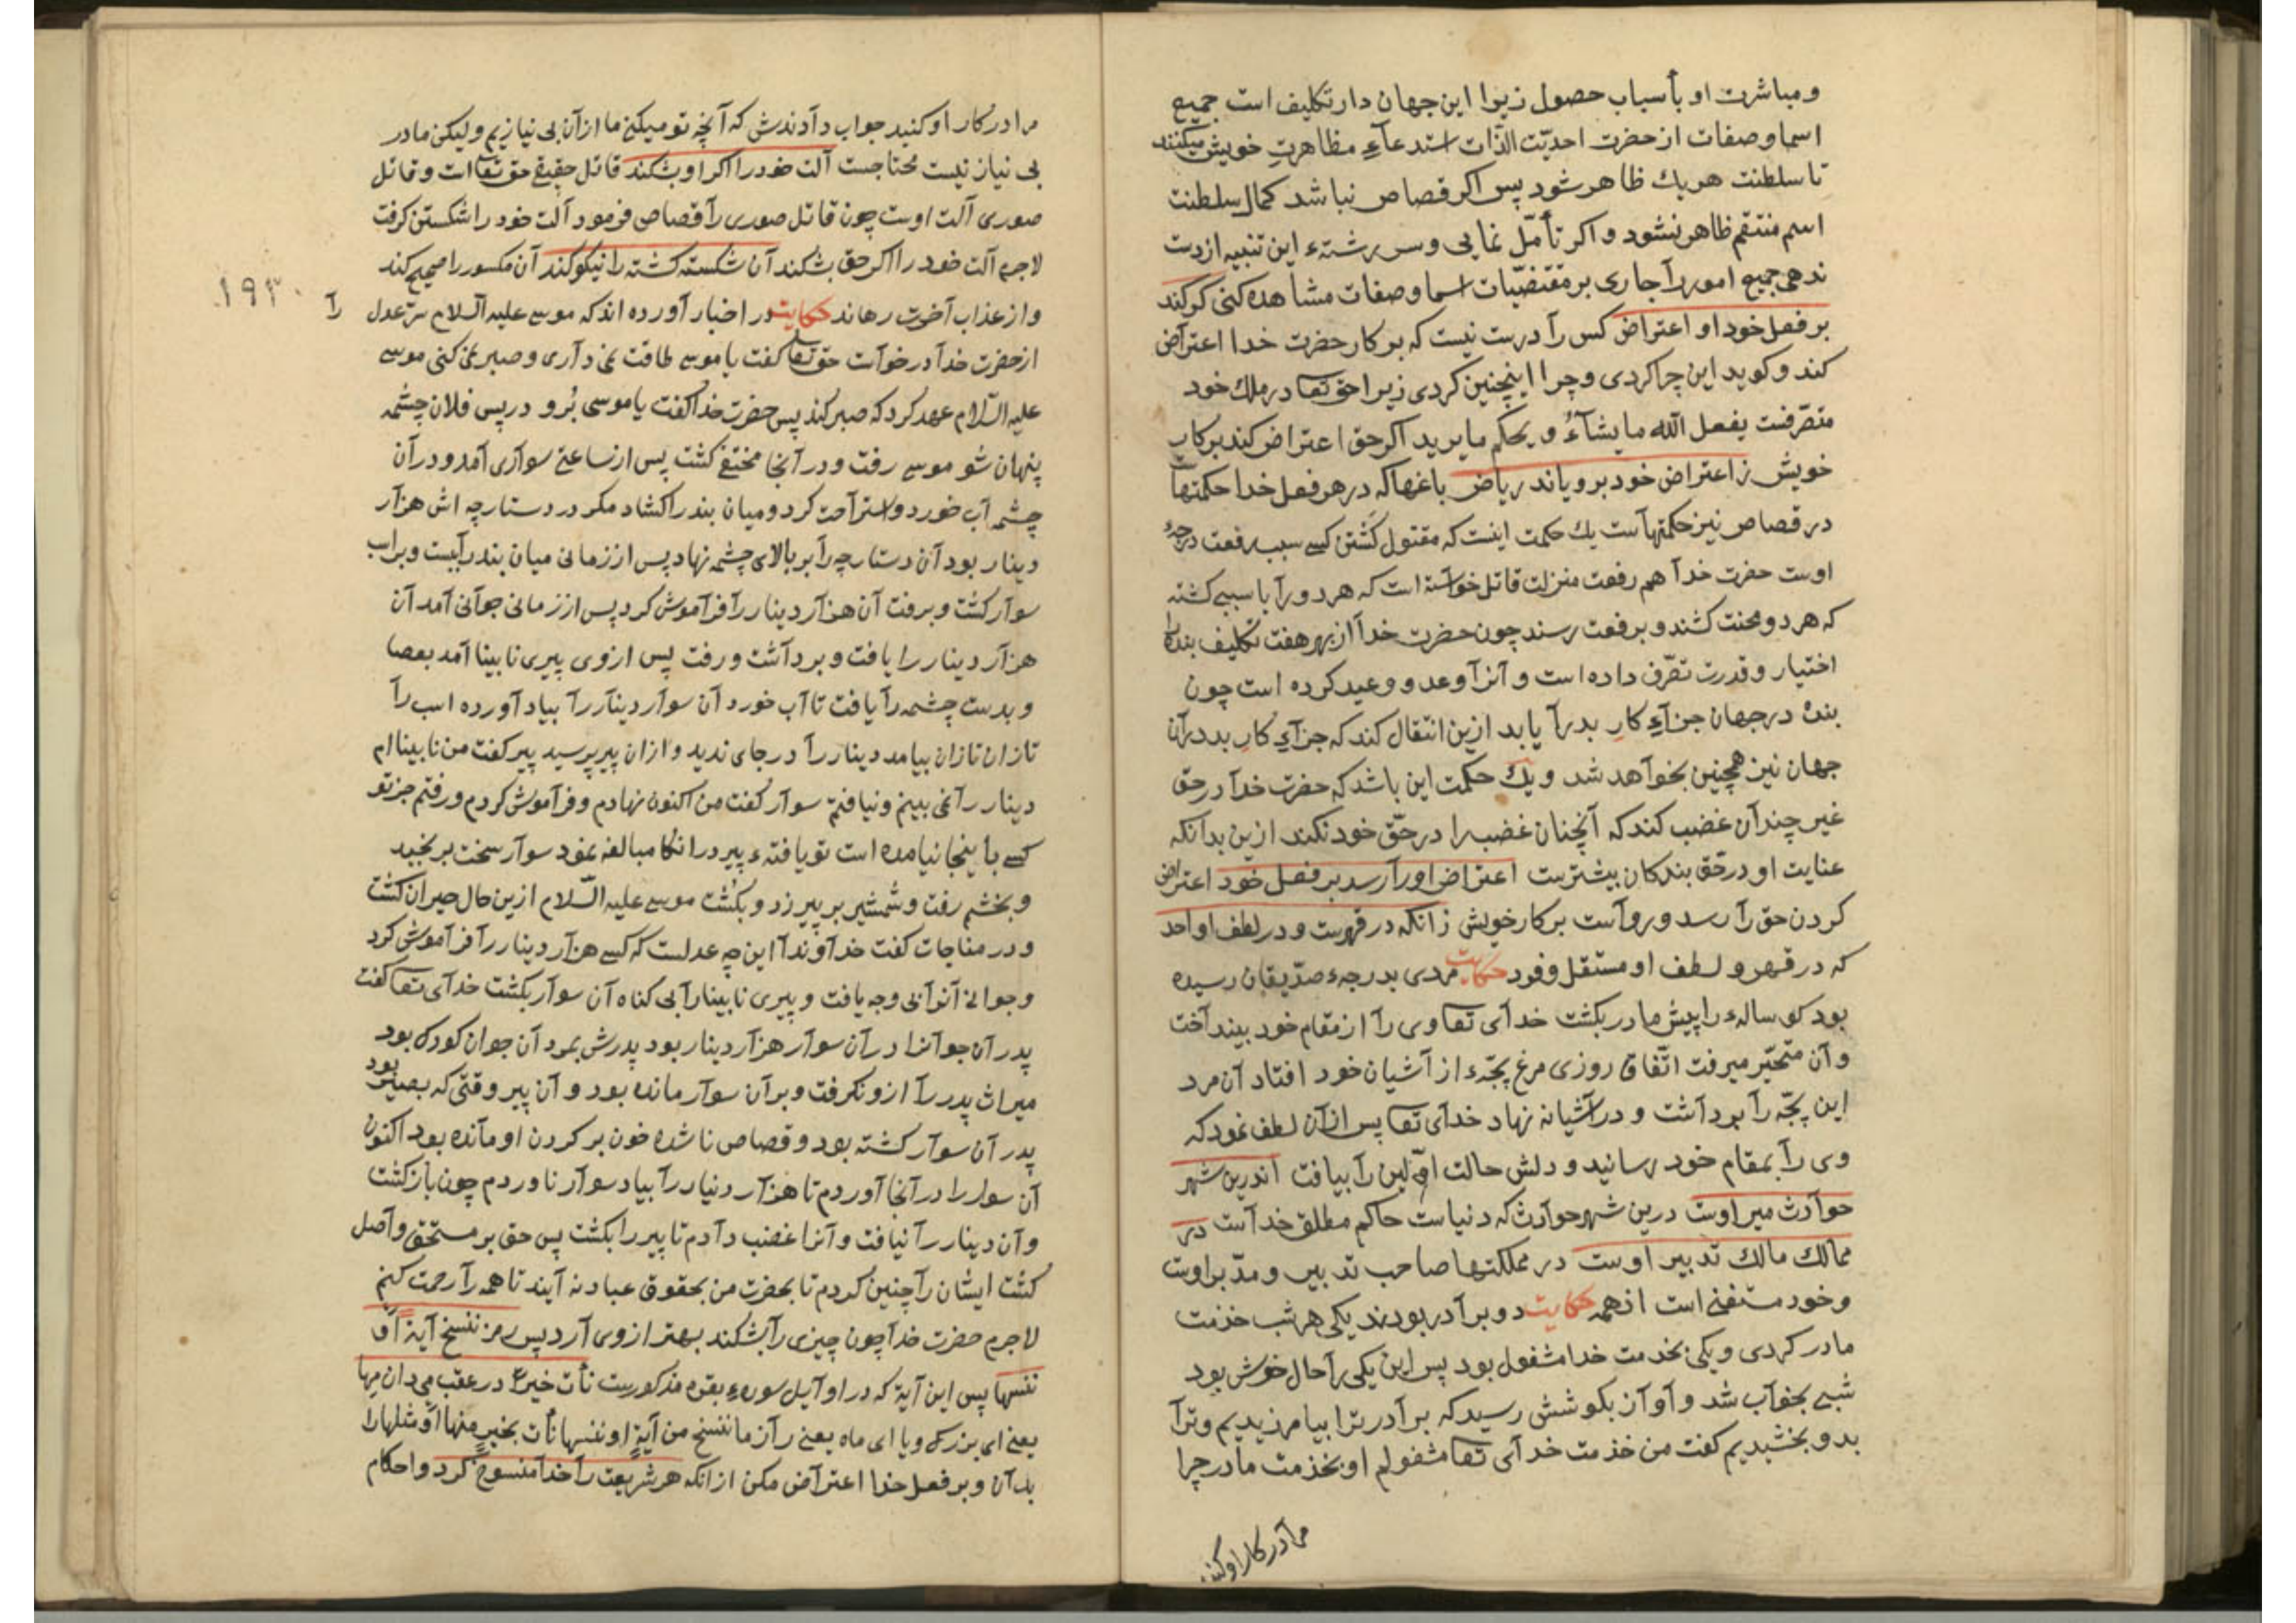 ومباشرت او بأسباب حصول زیرا این جهان دار تکلیف است جمیع
اسما وصفات از حضرت احدیّت الذّات استدعآءِ مظاهرتِ خویش میکنند
تا سلطنت هریك ظاهر شود پس اکر قصاص نباشد کمال سلطنت
اسم منتقم ظاهر نشود و اکر تأمّل نمایی وسر رشتهٔ این تنبیه از دست
ندهی جمیع امور رآ جاری بر مقتضیّات اسما وصفات مشاهده کنی کر کند
بر فعل خود او اعتراض کس رآ درست نیست که بر کار حضرت خدا اعترآض
کند وکوید این چرا کردی وچرا اینچنین کردی زیرا حق تعا در ملك خود
متصّرفست یفعل الله مایشآءُ و یحکم مایرید اکر حق اعتراض کند بر کار
خویش ز اعتراض خود برویاند ریاض باغها که در هر فعل خدا حکمتهاست
در قصاص نیز حکمتهآست یك حکمت اینست که مقتول کُشتن کسے سبب رفعت درجهٔ
اوست حضرت خدآ هم رفعت منزلت قاتل خوآسته است که هر دو رآ با سببے کشته
که هر دو محنت کشند و برفعت رسند چون حضرت خدآ از بهر تکلیف بنده را
اختیار وقدرت تصّرف داده است و آنرآ وعد و وعید کرده است چون
بنده در جهان جزآءِ کارِ بد رآ یابد ازین انتقال کند که جزآءِ کارِ بد در آن
جهان نیز همچنین بخوآهد شد ویك حکمت این باشد که حضرت خدآ در حق
غیر چندآن غضب کند که آنچنان غضب را در حقّ خود نکند ازین بدانکه
عنایت او در حّق بندکان بیشترست اعتراض اورآ رسد بر فعل خود اعتراض
کردن حق رآ رسد و روآست بر کار خویش زانکه در قهرست و در لطف او احد
که در قهر و لطف او مستقل وفرد حکایت مردی بدرجهٔ صدّیقان رسیده
بود کوسالهٔ را پیش مادر بکشت خدآی تعا وی رآ از مقام خود بیندآخت
وآن متحیّر میرفت اتّفاق روزی مرغ بچّهٔ از آشیان خود افتاد آن مرد
این بچّه رآ بردآشت و در آشیانه نهاد خدآی تعا پس از آن لطف نمود که
وی رآ بمقام خود رسانید و دلش حالت اوّلین رآ بیافت اندرین شهر
حوآدث میر اوست درین شهر حوآدث که دنیاست حاکم مطلق خدآست در
ممالك مالك تدبیر اوست در مملکتها صاحب تدبیر و مدّبر اوست
وخود مستغنے است از همه حکایت دو برآدر بودند یکی هر شب خذمت
مادر کردی و یکی بخدمت خدا مشغول بود پس این یکی رآ حال خوش بود
شبے بخوآب شد و آوآز بکوشش رسید که برآدر ترا بیامرزیدیم وترآ
بدو بخشیدیم کفت من خذمت خدآی تعا مشغولم او بخذمت مادر چرا
مرآ در کار او کنید
مرا در کار او کنید جواب دآدندش که آنچه تو میکنے ما ازآن بی نیازیم ولیکن مادر
بی نیاز نیست محتاجست آلت خود را اکر او بشکند قاتل حقیقے حق تعا است و قاتل
صوری آلت اوست چون قاتل صوری رآ قصاص فرمود آلت خود را شکستن کرفت
لاجرم آلت خود را اکر حق بشکند آن شکسته کشته را نیکو کند آن مکسور را صحیح کند
و از عذاب آخرت رهاند حکایت در اخبار آورده اند که موسے علیه السّلام سّر عدل رآ
۱۹۳۰
از حضرت خدآ درخوآست حق تعا کفت یا موسے طاقت نمی دآری و صبر نمی کنی موسے
علیه السّلام عهد کرد که صبر کند پس حضرت خدا کفت یا موسی بُرو در پس فلان چشمه
پنهان شو موسے رفت و در آنجا مختفے کشت پس از ساعتے سوآری آمد و در آن
چشمه آب خورد و استرآحت کرد و میان بند را کشاد مکر در دستارچه اش هزآر
دینار بود آن دستارچه رآ بر بالای چشمه نهاد پس از زمانی میان بند رآ ببست و بر اسب
سوآر کشت و برفت آن هزآر دینار رآ فرآموش کرد پس از زمانی جوآنی آمد آن
هزآر دینار را یافت و بردآشت و رفت پس از وی پیری نابینا آمد بعصا
و بدست چشمه رآ یافت تا آب خورد آن سوآر دینآر رآ بیاد آورده اسب رآ
تازان تازان بیامد دینار رآ در جای ندید و از ان پیر پرسید پیر کفت من نابیناام
دینار رآ نمی بینم و نیافتم سوآر کفت من اکنون نهادم و فرآموش کردم و رفتم جز تو
کسے بأینجا نیامده است تو یافتهٔ پیر در انکار مبالغه نمود سوآر سخت برنجید
و بخشم رفت و شمشیر بر پیر زد و بکُشت موسے علیه السّلام ازین حال حیران کشت
و در مناجات کفت خدآوندآ این چه عدلست که کسے هزآر دینار رآ فرآموش کرد
و جوآنے آنرآ بی وجه یافت و پیری نابینا رآ بی کناه آن سوآر بکشت خدآی تعا کفت
پدر آن جوآنرا در آن سوآر هزآر دینار بود پدرش بمرد آن جوان کودک بود
میرآث پدر رآ ازو نکرفت و بر آن سوآر مانده بود و آن پیر وقتی که بصیر بود
پدر آن سوآر کشته بود و قصاص ناشده خون بر کردن او مآنده بود اکنون
آن سوار را در آنجا آوردم تا هزآر دینار رآ بیاد سوآر ناوردم چون بازکشت
و آن دینار رآ نیافت و آنرا غضب دآدم تا پیر را بکشت پس حق بر مستحق وآصل
کشت ایشان رآ چنین کردم تا بحضرت من بحقوق عباد نه آیند تا همه رآ رحمت کنم
لاجرم حضرت خدآ چون چیزی رآ بشکند بهتر از وی آرد پس رمز ننسخ آیةً آو
ننسها پس این آیة که در اوآیل سورهٔ بقره مذکورست نأت خیرًا در عقب می دان مِها
یعنے ای بزرک و یا ای ماه یعنے رآز ما ننسخ من آیةٍ او ننسها نأت بخیرٍ منها اَوْ مثلها را
بدآن و بر فعل خدا اعترآض مکن از انکه هر شریعت رآ خدآ منسوخ کرد و احکام